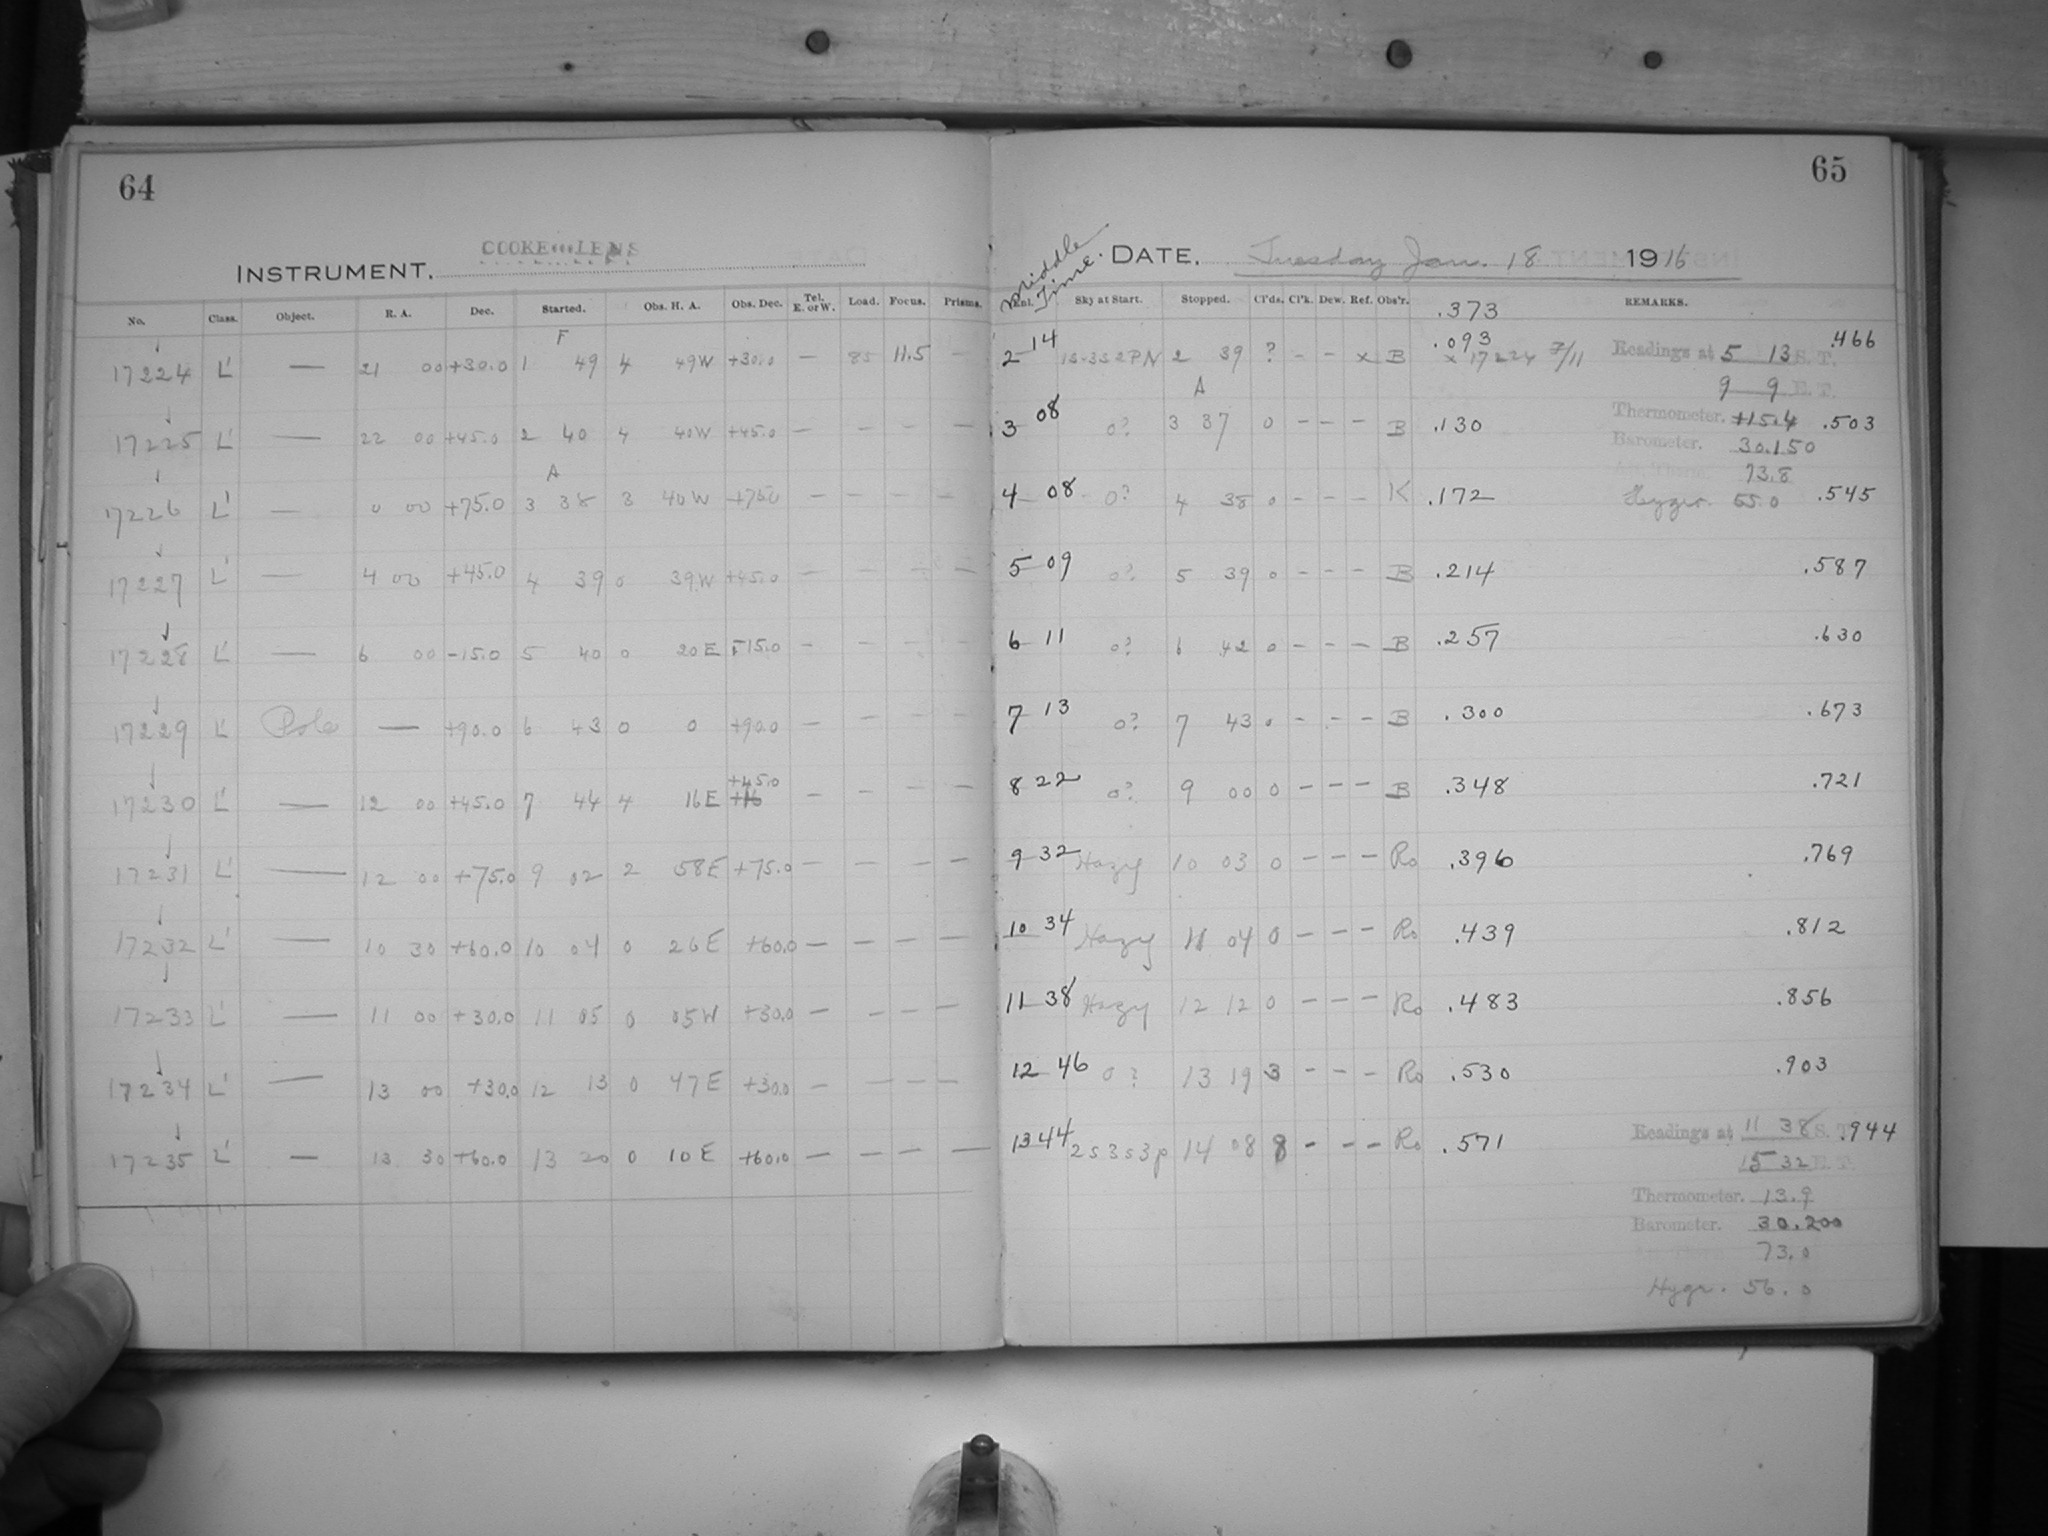 64
COOKE LENS
INSTRUMENT.
No. Class. Object. R. A. Dec. Started. Obs. H. A. Obs. Dec. Tel. E. or W. Load. Focus. Prisms.
F
17224 L' — 21 00 +30.0 1 49 4 49W +30.0 — 85 11.5 —
17225 L' — 22 00 +45.0 2 40 4 40W +45.0 — — — —
A
17226 L' — 0 00 +75.0 3 38 3 40W +75.0 — — — —
17227 L' — 4 00 +45.0 4 39 0 39W +45.0 — — — —
17228 L' — 6 00 -15.0 5 40 0 20E -15.0 — — — —
17229 L' Pole — +90.0 6 43 0 0 +90.0 — — — —
+45.0
17230 L' — 12 00 +45.0 7 44 4 16E +16 — — — —
17231 L' — 12 00 +75.0 9 02 2 58E +75.0 — — — —
17232 L' — 10 30 +60.0 10 04 0 26E +60.0 — — — —
17233 L' — 11 00 +30.0 11 05 0 05W +30.0 — — — —
17234 L' — 13 00 +30.0 12 13 0 47E +30.0 — — — —
17235 L' — 13 30 +60.0 13 20 0 10E +60.0 — — — —
65
Middle Time. DATE. Tuesday Jan. 18 1916
Enl. Sky at Start. Stopped. Cl'ds. Cl'k. Dew. Ref. Obs'r. .373 REMARKS.
.093
2 14 1s-3s2PN 2 39 ? - - x B x 17224 7/11 Readings at 5 13 S. T. .466
A
9 9 E. T.
3 08 0? 3 37 0 - - - B .130 Thermometer. +15.4 .503
Barometer. 30.150
73.8
4 08 0? 4 38 0 - - - K .172 Hygr. 55.0 .545
5 09 0? 5 39 0 - - - B .214 .587
6 11 0? 6 42 0 - - - B .257 .630
7 13 0? 7 43 0 - - - B .300 .673
8 22 0? 9 00 0 - - - B .348 .721
9 32 Hazy 10 03 0 - - - Ro .396 .769
10 34 Hazy 11 04 0 - - - Ro .439 .812
11 38 Hazy 12 12 0 - - - Ro .483 .856
12 46 0? 13 19 3 - - - Ro .530 .903
13 44 2s3s3p 14 08 8 - - - Ro .571 Readings at 11 38 S. T. .944
15 32 E. T.
Thermometer. 13.9
Barometer. 30.200
73.0
Hygr. 56.0